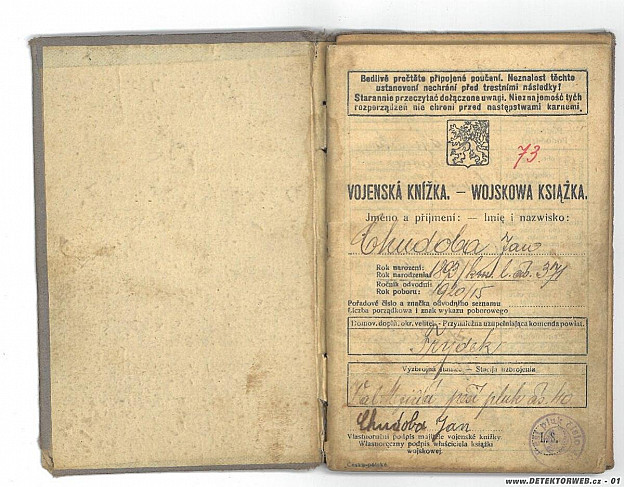 Bedlivě pročtěte připojená poučení. Neznalost těchto
ustanovení nechrání před trestními následky!
Starannie przeczytać dołączone uwagi. Nieznajemość tych
rozporządzeń nie chroni przed następstwami karnumi.
73.
VOJENSKÁ KNÍŽKA. — WOJSKOWA KSIĄŻKA.
Jméno a příjmení: — Imię i nazwisko:
Chudoba Jan
Rok narození:
Rok narodzenia: 1893
Ročník odvodní:
Rok poboru: 1920/15
Pořadové číslo a značka odvodního seznamu
Liczba porządkowa i znak wykazu poborowego
Domov. doplň. okr. velitel. - Przynależna uzupełniająca komenda powiat.
Frýdek
Výzbrojná stanice. — Stacja uzbrojenia
pluk
Chudoba Jan
Vlastnoruční podpis majitele vojenské knížky.
Własnoręczny podpis właściciela książki
wojskowej.
L. S.
Česko-polská.
www.DETEKTORWEB.cz - 01